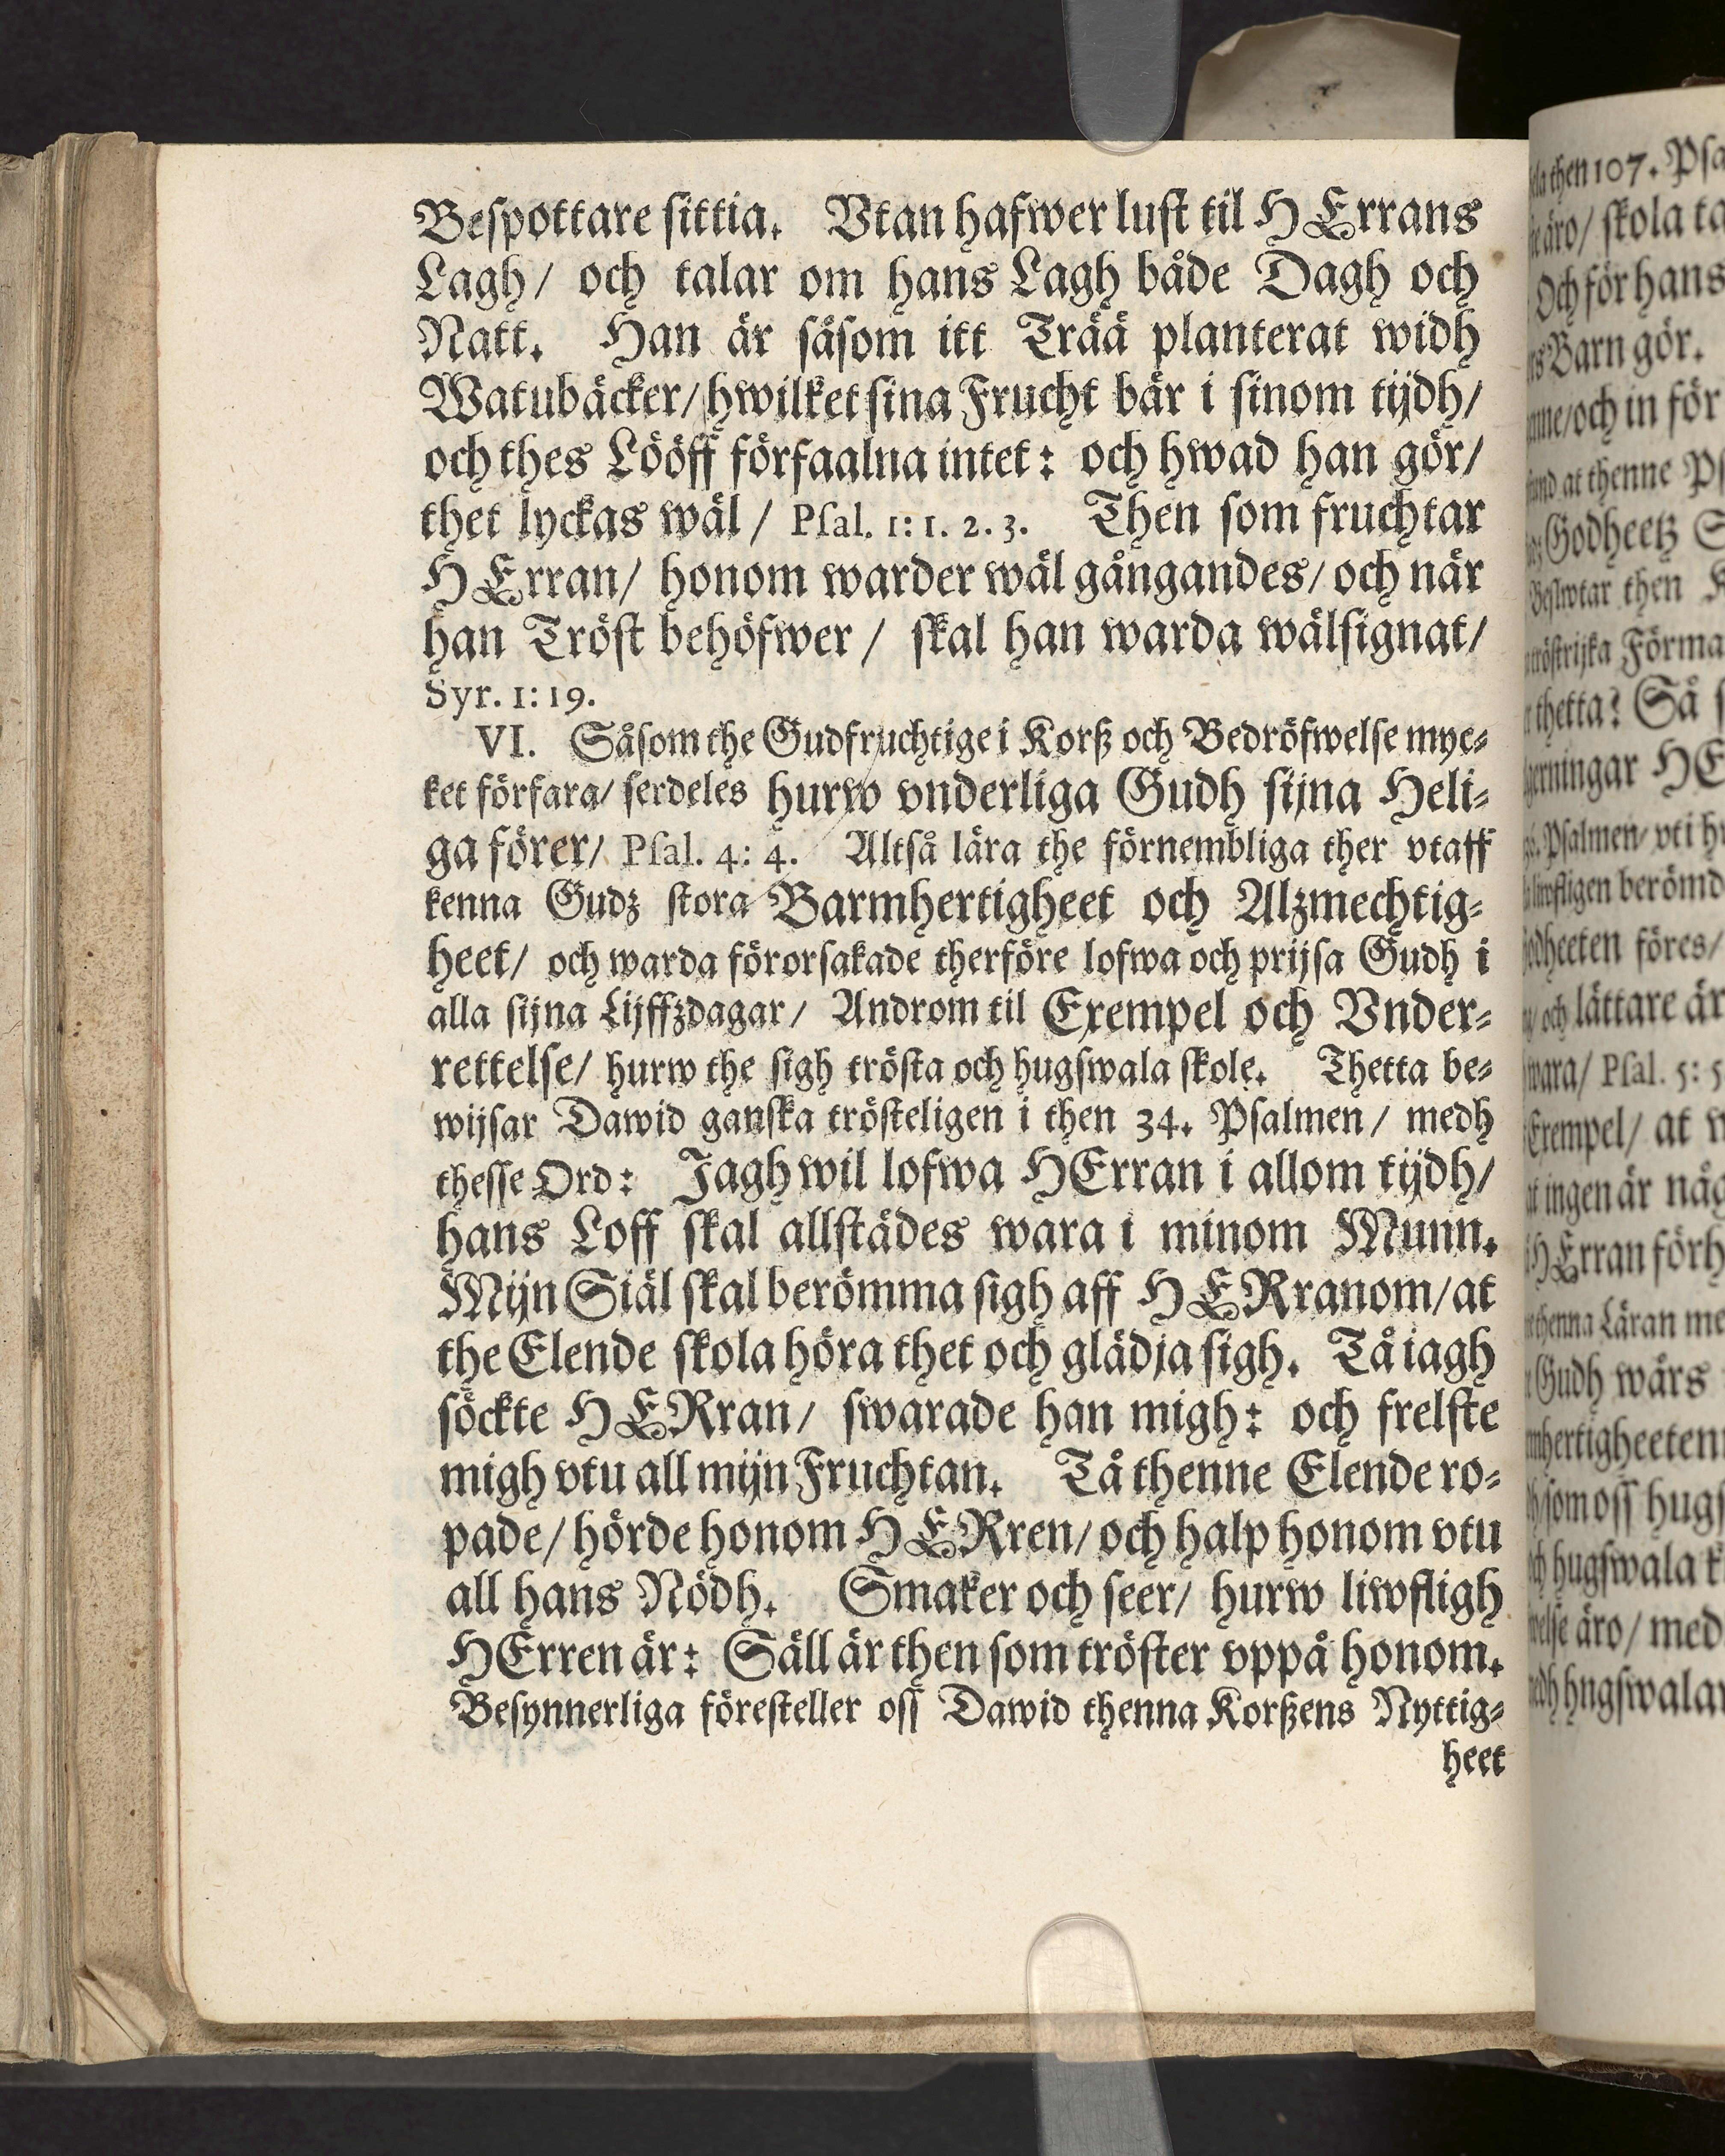 Bespottare sittia. Vtan hafwer lust til HErrans
Lagh/ och talar om hans Lagh både Dagh och
Natt. Han är såsom itt Trää planterat widh
Watubäcker/ hwilket sina Frucht bär i sinom tijdh/
och thes Lööff förfaalna intet: och hwad han gör/
thet lyckas wäl / Psal. 1: 1. 2. 3. Then som fruchtar
HErran/ honom warder wäl gångandes/ och när
han Tröst behöfwer / skal han warda wälsignat/
Syr. 1: 19.
VI. Såsom the Gudfruchtige i Korß och Bedröfwelse mye-
ket förfara/ serdeles hurw vnderliga Gudh sijna Heli-
ga förer/ Psal. 4: 4. Altså lära the förnembliga ther vtaff
kenna Gudz stora Barmhertigheet och Alzmechtig-
heet/ och warda förorsakade therföre lofwa och prijsa Gudh i
alla sijna Lijffzdagar/ Androm til Exempel och Vnder-
rettelse/ hurw the sigh trösta och hugswala skole. Thetta be-
wijsar Dawid ganska trösteligen i then 34. Psalmen/ medh
thesse Ord: Jagh wil lofwa HErran i allom tijdh/
hans Loff skal allstädes wara i minom Munn.
Mijn Siäl skal berömma sigh aff HERranom/ at
the Elende skola höra thet och glädja sigh. Tå iagh
söckte HERran/ swarade han migh: och frelste
migh vtu all mijn Fruchtan. Tå thenne Elende ro-
pade/ hörde honom HERren/ och halp honom vtu
all hans Nödh. Smaker och seer/ hurw liwfligh
HErren är: Säll är then som tröster vppå honom.
Besynnerliga föresteller oss Dawid thenna Korßens Nyttig-
heet
then 107.
äro/ skola
Och för hans
Barn gör.
och in för
at thenne
Godheetz
then
Förma
thetta! Så
Psalmen/ vti
berömd
föres/
och lättare är
Psal. 5: 5
Exempel/ at
ingen är någ
HErran förh
thenna Läran
Gudh wårs
som oss hugs
hugswala
äro/ med